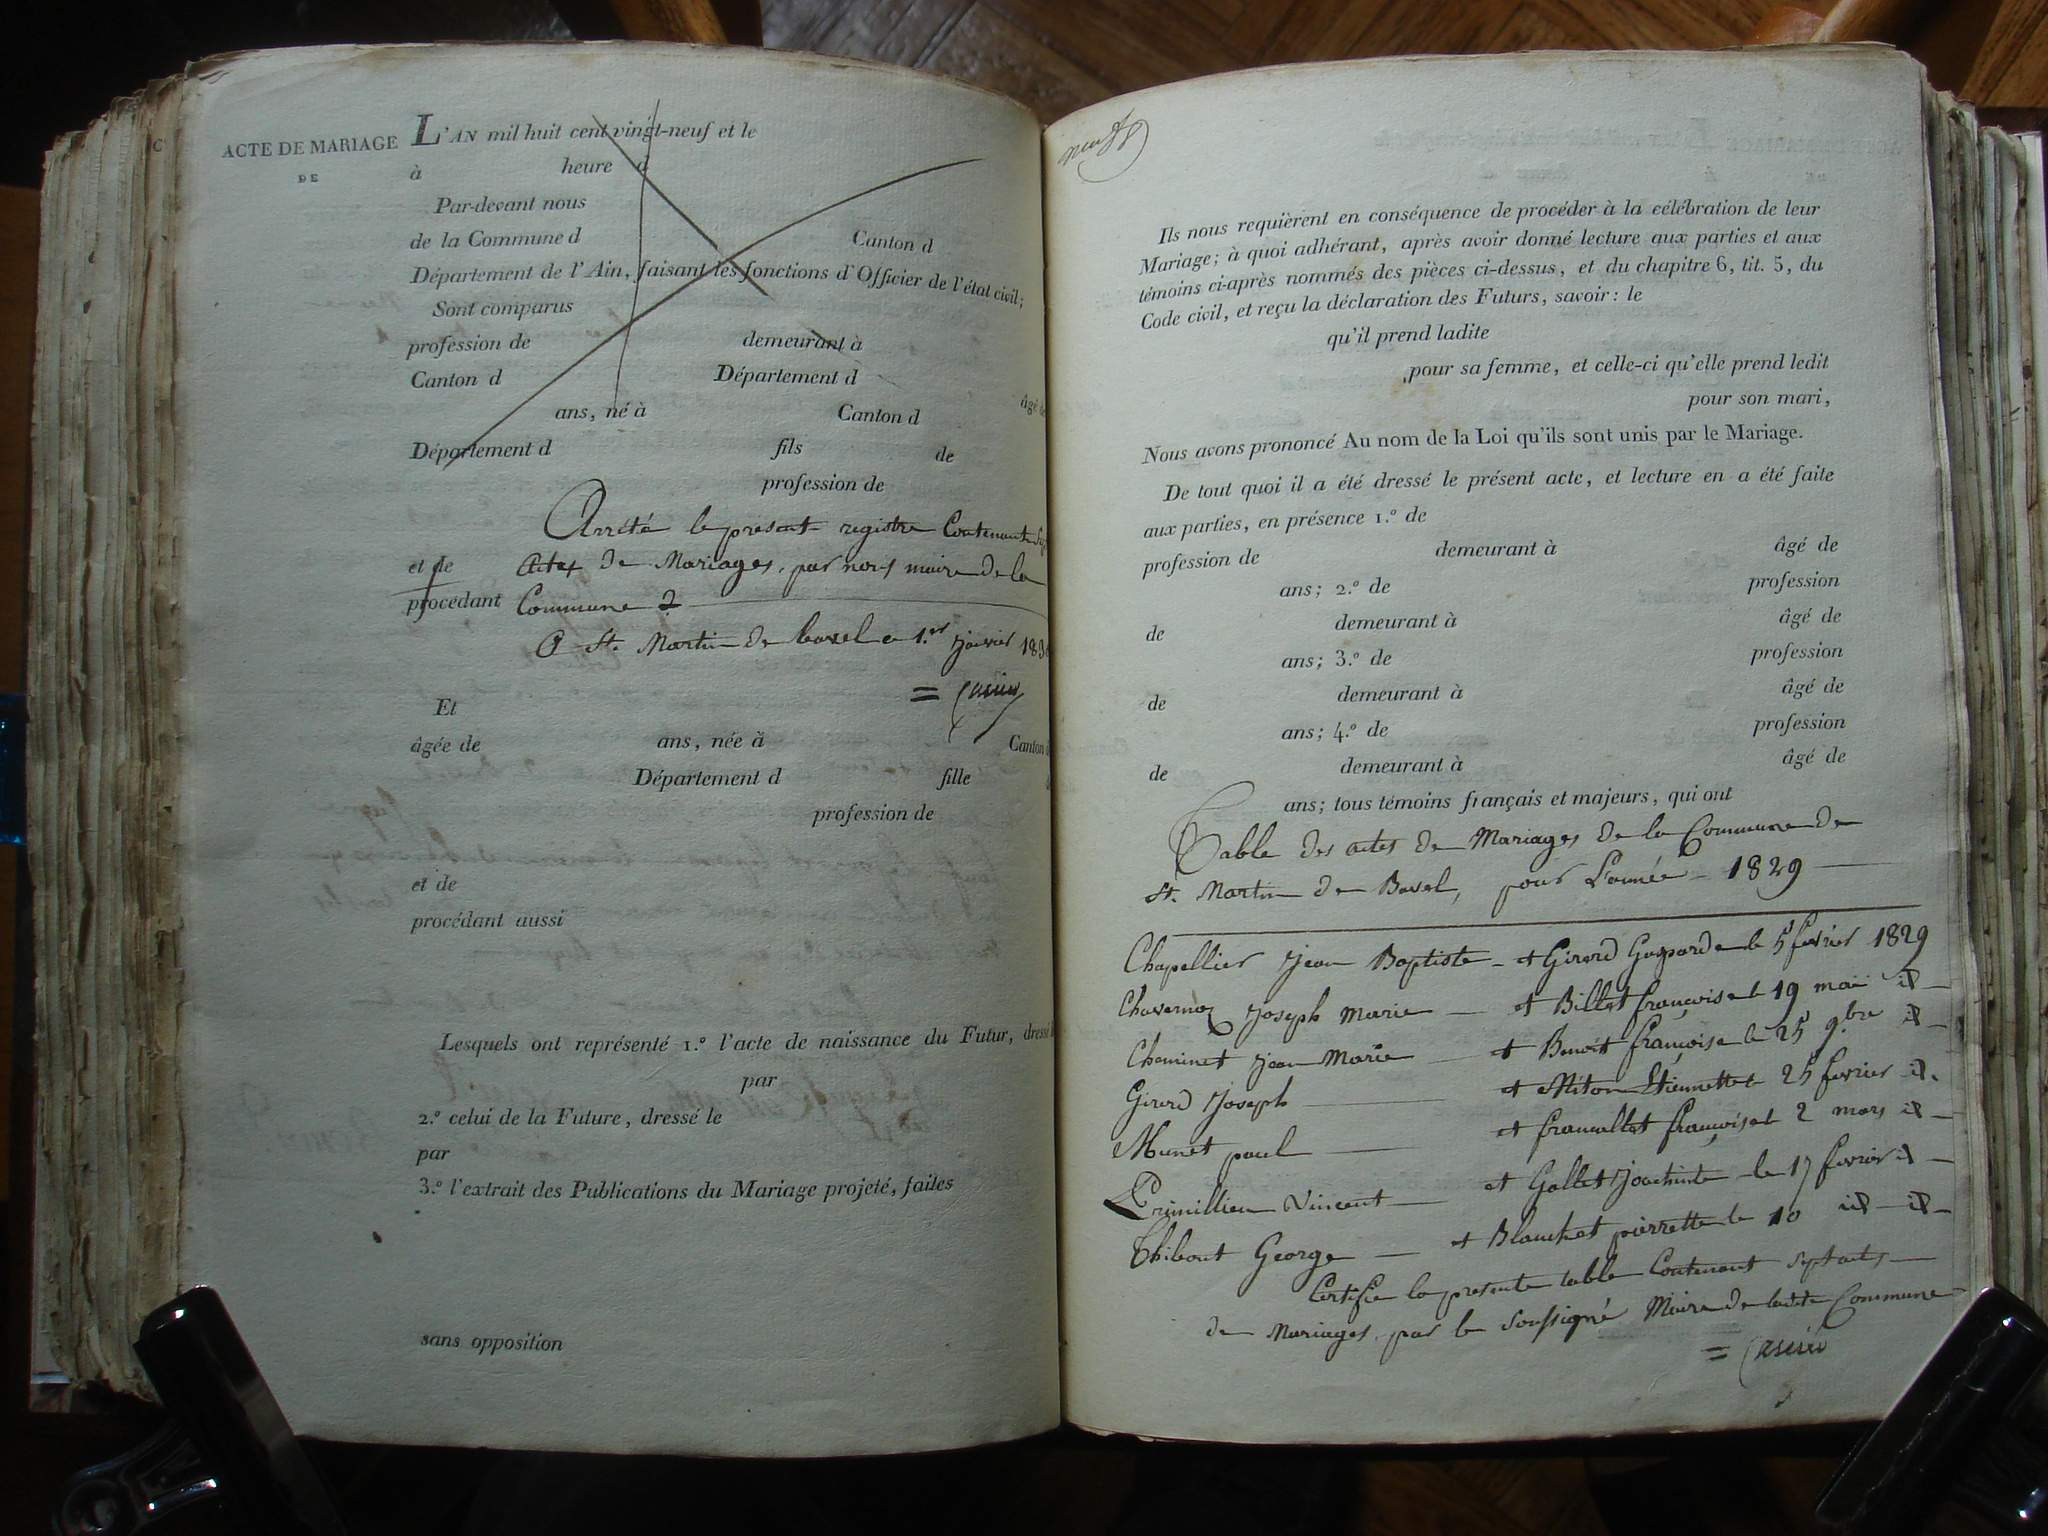 ACTE DE MARIAGE
DE
L'AN mil huit cent vingt-neuf et le
à heure d
Par-devant nous
de la Commune d Canton d
Département de l'Ain, faisant les fonctions d'Officier de l'état civil;
Sont comparus
profession de demeurant à
Canton d Département d âgé de
ans, né à Canton d
Département d fils de
profession de
Arrêté le présent registre Contenant Sept
et de
Actes de Mariages, par nous maire de la
procédant
Commune d.
A St. Martin de bavel le 1.er janvier 1830
= Cassin
Et
âgée de ans, née à Canton d
Département d fille
profession de
et de
procédant aussi
Lesquels ont représenté 1.º l'acte de naissance du Futur, dressé
par
2.º celui de la Future, dressé le
par
3.º l'extrait des Publications du Mariage projeté, faites
sans opposition
neuf
Ils nous requièrent en conséquence de procéder à la célébration de leur
Mariage; à quoi adhérant, après avoir donné lecture aux parties et aux
témoins ci-après nommés des pièces ci-dessus, et du chapitre 6, tit. 5, du
Code civil, et reçu la déclaration des Futurs, savoir: le
qu'il prend ladite
pour sa femme, et celle-ci qu'elle prend ledit
pour son mari,
Nous avons prononcé Au nom de la Loi qu'ils sont unis par le Mariage.
De tout quoi il a été dressé le présent acte, et lecture en a été faite
aux parties, en présence 1.º de
profession de demeurant à âgé de
ans; 2.º de profession
de demeurant à âgé de
ans; 3.º de profession
de demeurant à âgé de
ans; 4.º de profession
de demeurant à âgé de
ans; tous témoins français et majeurs, qui ont
Table des actes de Mariages de la Commune de
St. Martin de Bavel, pour L'année 1829
Chapellier Jean Baptiste et Girard Gasparde le 5 février 1829
Chavernoz Joseph Marie et Billet françoise le 19 mai id
Cheminet Jean Marie et Benoit françoise le 25 9.bre id
Girard Joseph et Miton Etiennette 25 février id.
Munet paul et francallet françoise le 2 mars id
Primillieu Vincent et Gallet Joachinte le 17 février id
Thibout George et Blanchet pierrette le 10 id id
Certifié la présente table Contenant sept actes
de Mariages, par le soussigné Maire de ladite Commune
= Cassin